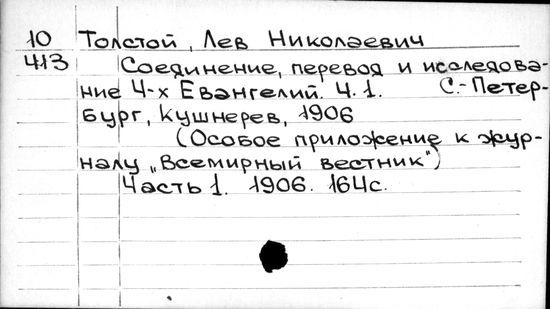 10 Толстой, Лев Николаевич
413 Соединение, перевод и исследова-
ние 4-х Евангелий. Ч.1. С.-Петер-
бург, Кушнерев, 1906
(Особое приложение к жур-
налу „Всемирный вестник")
Часть 1. 1906. 164с.